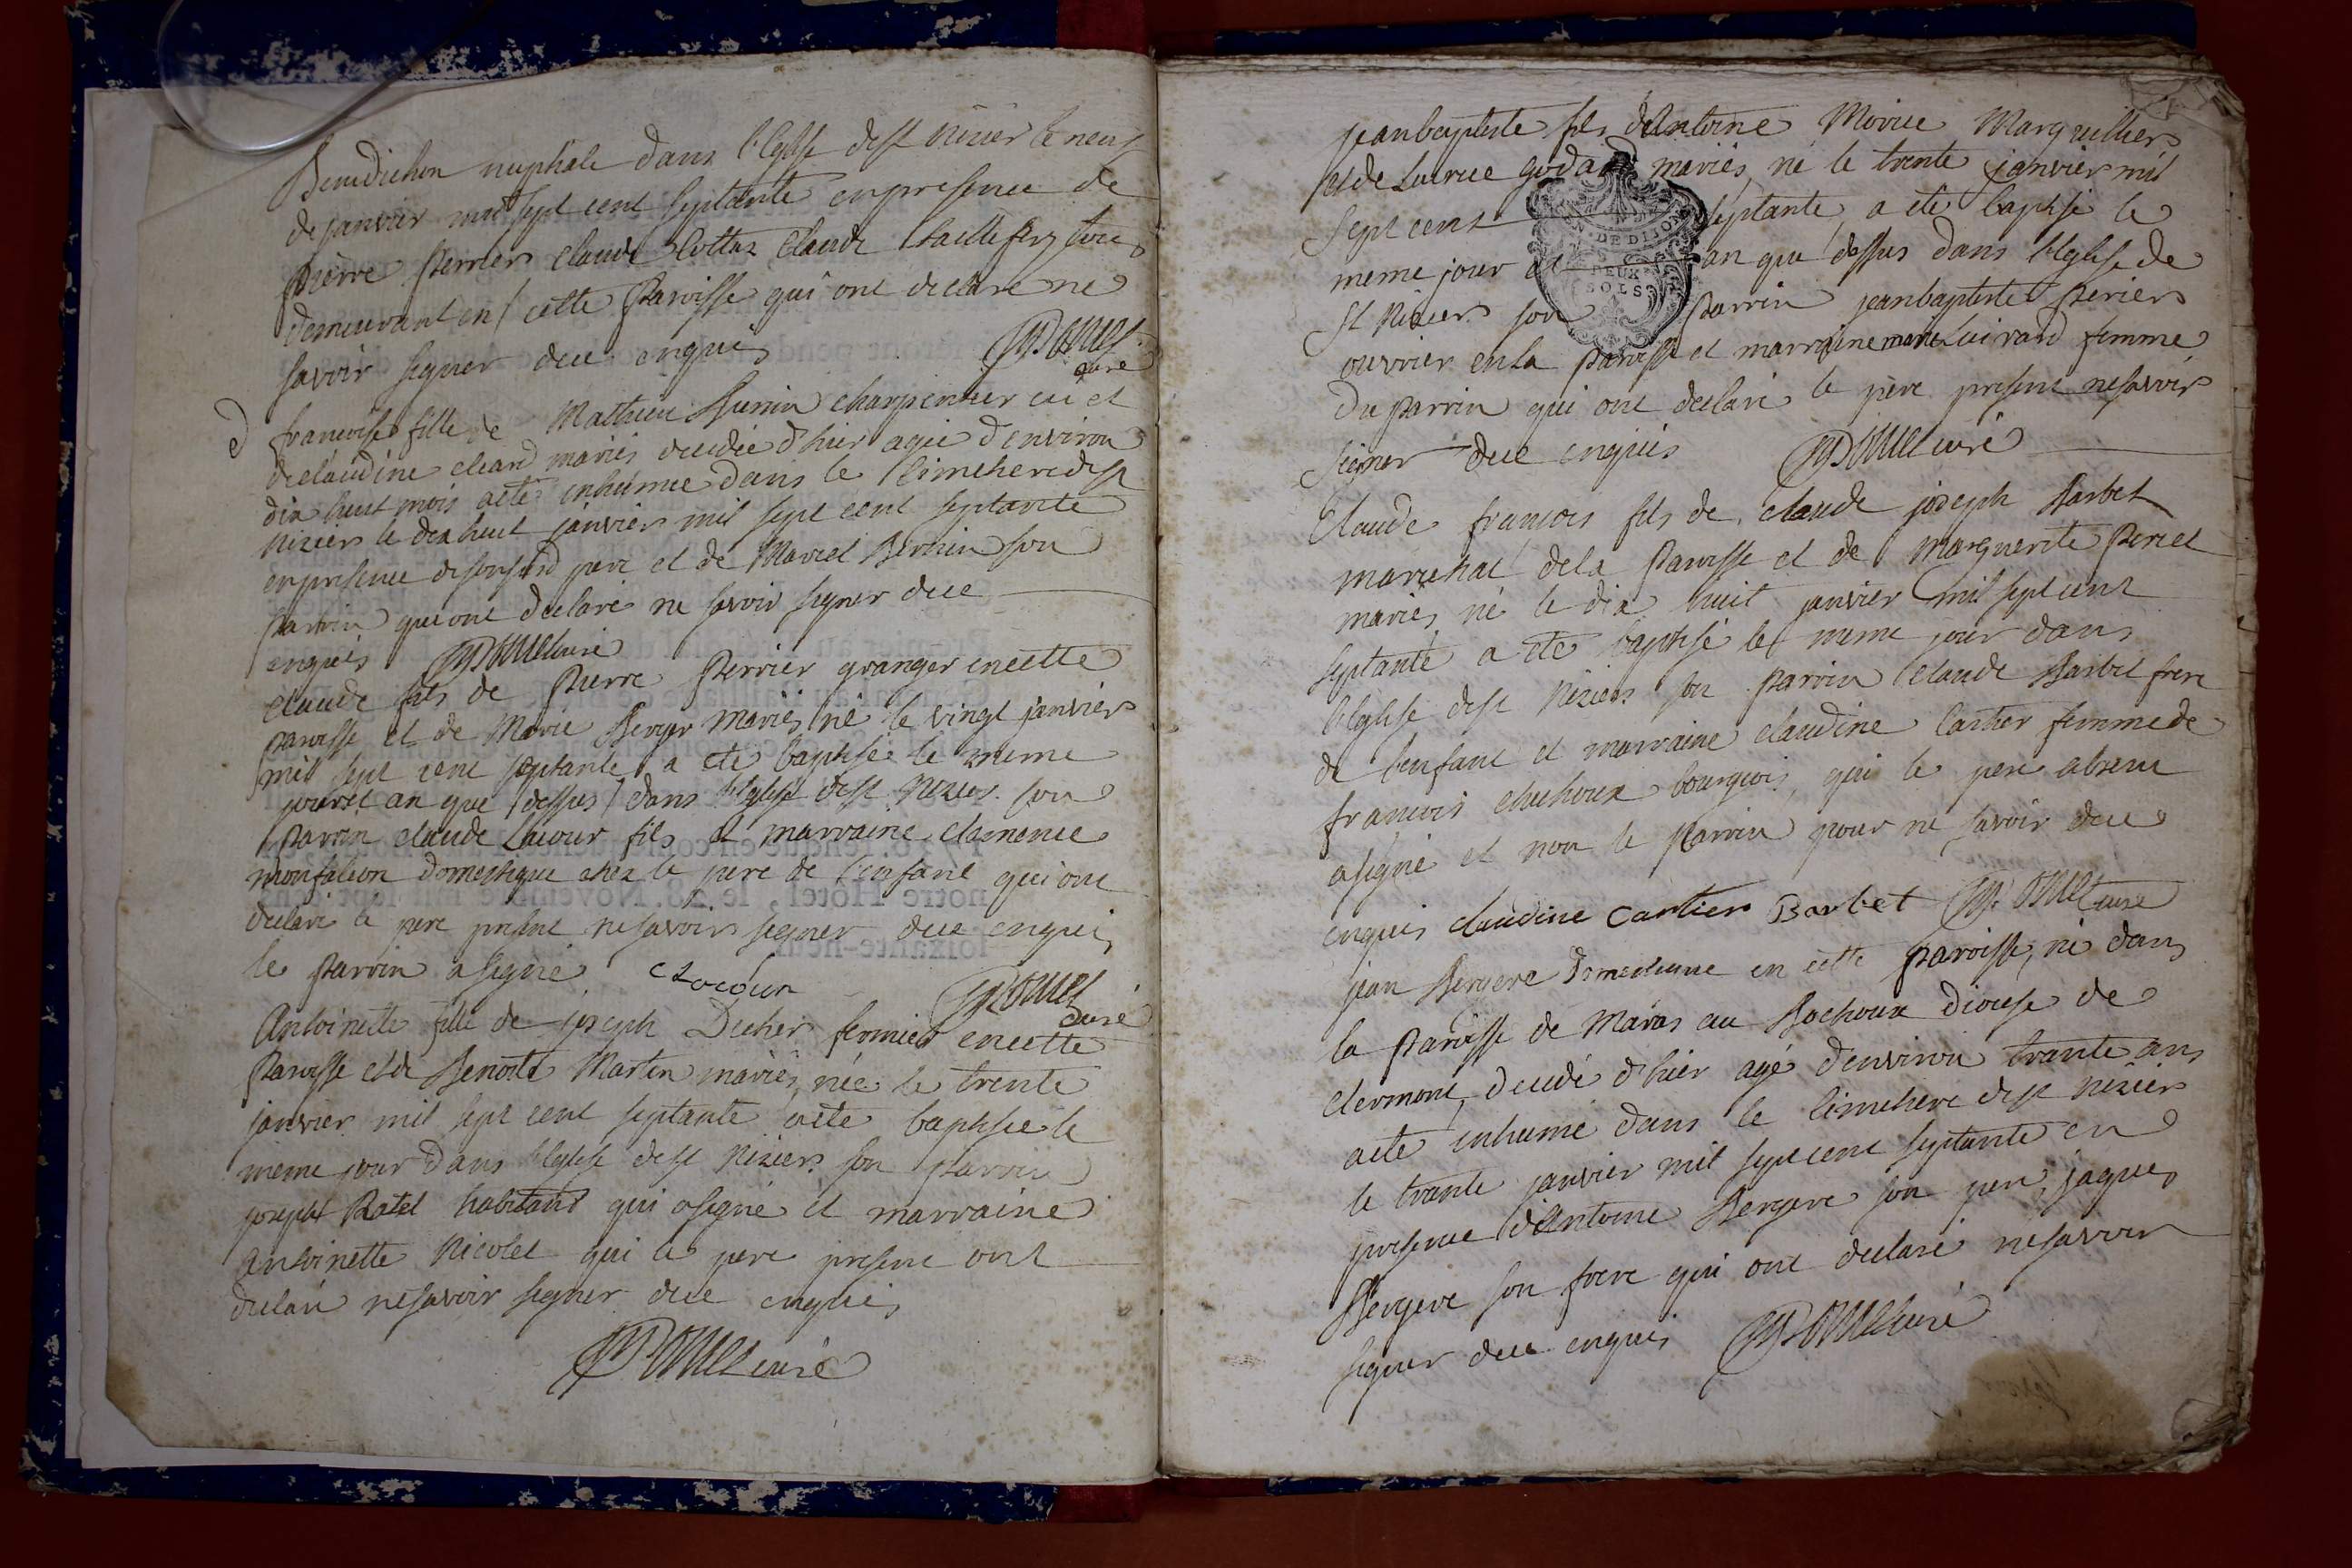 Benediction nuptiale dans l'Eglise de st nizier le neuf
de janvier mil sept cent septante en presence de
pierre perrier claude Cottaz claude
demeurant en cette paroisse qui ont declare ne
savoir signer de ce enquis
curé
d
francoise fille de Mathieu charpentier ici et
de claudine cleard mariés decedée d'hier agée d'environ
dix huit mois a eté inhumée dans le Cimetiere de st
nizier le dix huit janvier mil sept cent septante
en presence de sonsusd pere et de Marcel son
parrin qui ont declaré ne savoir signer de ce
enquis curé
claude fils de pierre perrier granger en cette
paroisse et de Marie Berger mariés né le vingt janvier
mil sept cent septante a eté baptisé le meme
jour et an que dessus dans l'Eglise de st nizier son
parrin claude Lacour fils et marraine clemence
monfalcon domestique chez le pere de l'enfant qui ont
declaré le pere present ne savoir signer de ce enquis
le parrin a signé. C Lacour
curé
Antoinette fille de joseph Ducher fermier en cette
paroisse et de Benoite Martin mariés, née le trente
janvier mil sept cent septante a eté baptisée le
meme jour dans l'Eglise de st nizier son parrin
joseph Ratel habitant qui a signé et marraine
antoinette Nicolet qui le pere present ont
declaré ne savoir signer de ce enquis
curé
jean baptiste fils d'Antoine Marguillier
et de godard mariés, né le trente janvier mil
sept cent septante, a eté baptisé le
meme jour et an que dessus dans l'Eglise de
EN. DE DIJON
DEUX
SOLS
st nizier son parrin jean baptiste perier
ouvrier en la paroisse et marraine marie femme
du parrin qui ont declaré le pere present ne savoir
signer de ce enquis curé
Claude françois fils de claude joseph Barbet
marechal de la paroisse et de Marguerite
mariés, né le dix huit janvier mil sept cent
septante a eté baptisé le meme jour dans
l'Eglise de st nizier son parrin Claude Barbet frere
de l'enfant et marraine claudine Cartier femme de
francois bourgeois, qui le pere absent
a signé et non le parrin pour ne savoir de ce
enquis claudine Cartier Barbet curé
jean Bergere en cette paroisse, né dans
la paroisse de Maras au diocese de
clermont, decedé d'hier agé d'environ trante ans
a eté inhumé dans le Cimetiere de st nizier
le trante janvier mil sept cent septante en
presence d'Antoine Bergere son pere, jaques
Bergere son frere qui ont declaré ne savoir
signer de ce enquis curé